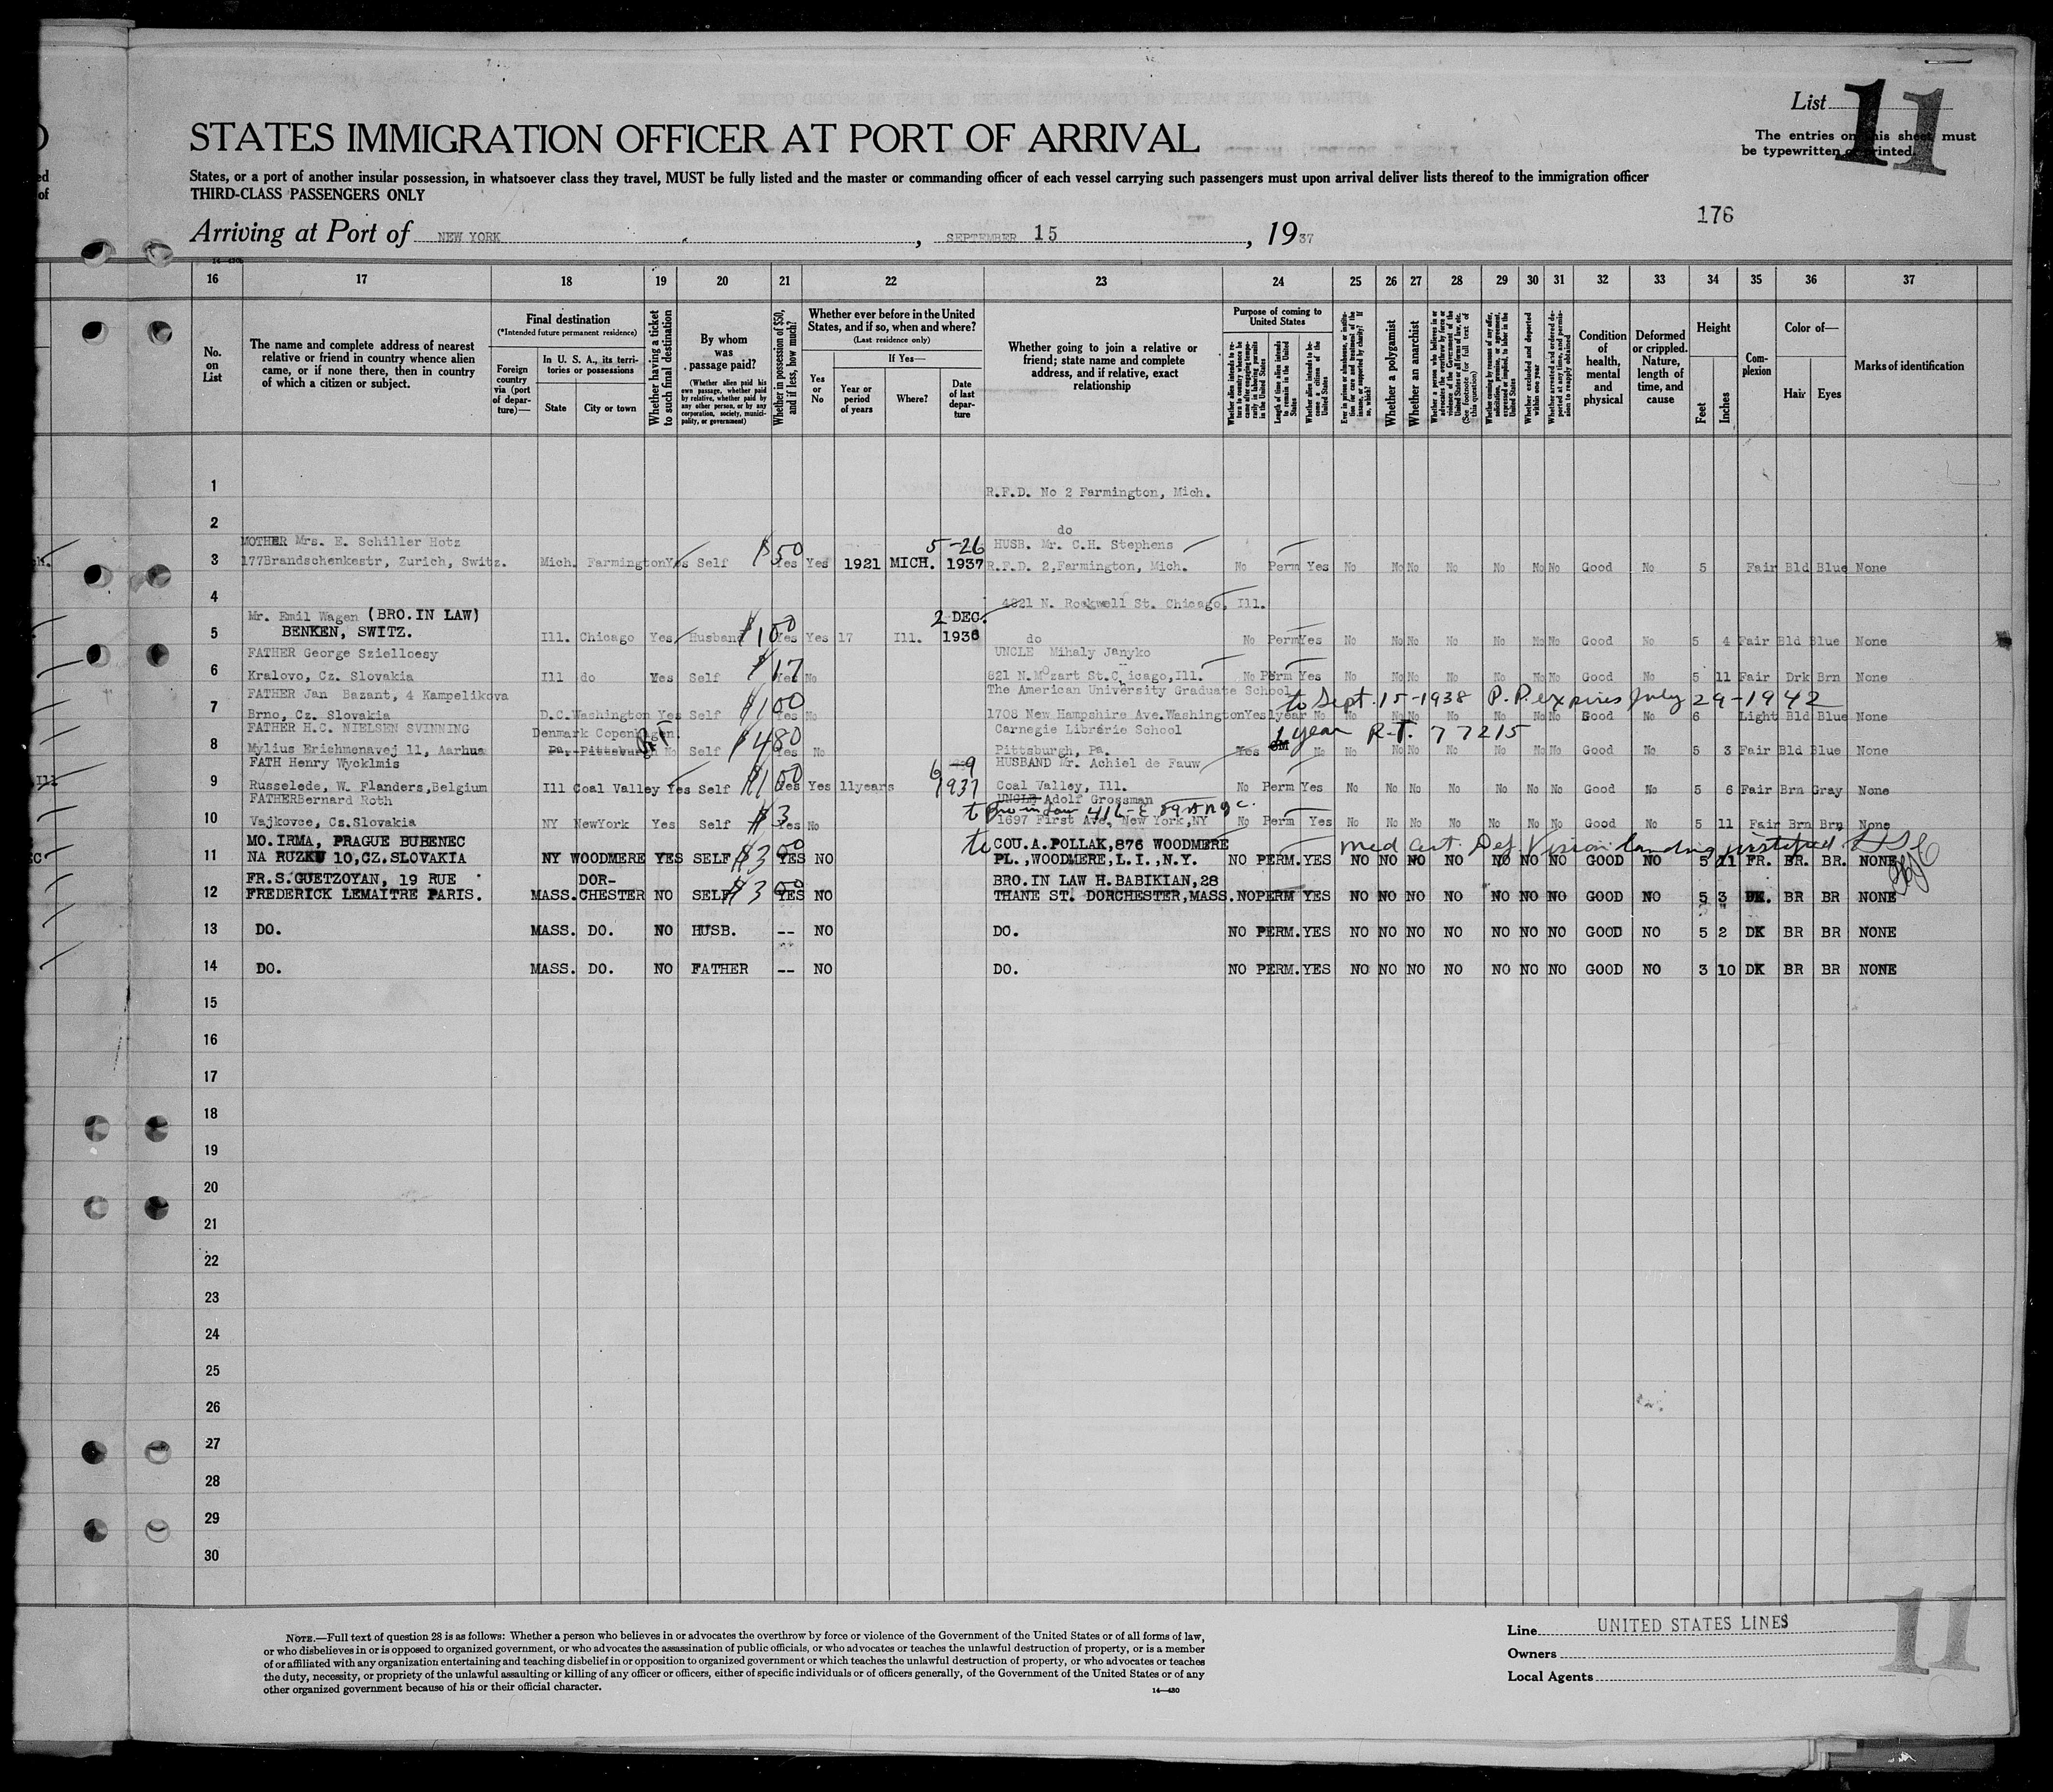 List 11
The entries on this sheet must
be typewritten or printed.
STATES IMMIGRATION OFFICER AT PORT OF ARRIVAL
States, or a port of another insular possession, in whatsoever class they travel, MUST be fully listed and the master or commanding officer of each vessel carrying such passengers must upon arrival deliver lists thereof to the immigration officer
THIRD-CLASS PASSENGERS ONLY
176
Arriving at Port of NEW YORK, SEPTEMBER 15, 1937
16 17 18 19 20 21 22 23 24 25 26 27 28 29 30 31 32 33 34 35 36 37
No. on List
The name and complete address of nearest
relative or friend in country whence alien
came, or if none there, then in country
of which a citizen or subject.
Final destination
(*Intended future permanent residence)
Foreign country via (port of departure)—
In U. S. A., its territories or possessions
State
City or town
Whether having a ticket to such final destination
By whom was passage paid?
(Whether alien paid his own passage, whether paid by relative, whether paid by any other person, or by any corporation, society, municipality, or government)
Whether in possession of $50, and if less, how much?
Whether ever before in the United States, and if so, when and where?
(Last residence only)
Yes or No
If Yes—
Year or period of years
Where?
Date of last departure
Whether going to join a relative or
friend; state name and complete
address, and if relative, exact
relationship
Purpose of coming to United States
Length of time alien intends to remain in the United States
Whether alien intends to become a citizen of the United States
Whether a polygamist
Whether an anarchist
Condition of health, mental and physical
Deformed or crippled. Nature, length of time, and cause
Height
Feet
Inches
Complexion
Color of—
Hair
Eyes
Marks of identification
1
R.F.D. No 2 Farmington, Mich.
2
do
MOTHER Mrs. E. Schiller Hotz 5-26 HUSB. Mr. C.H. Stephens
3 177Brandschenkestr, Zurich, Switz. Mich. Farmington Yes Self $50 Yes Yes 1921 MICH. 1937 R.F.D. 2,Farmington, Mich. No Perm Yes No No No No No No No Good No 5 Fair Bld Blue None
4 4821 N. Rockwell St. Chicago, Ill.
Mr. Emil Wagen (BRO.IN LAW) 2 DEC.
5 BENKEN, SWITZ. Ill. Chicago Yes Husband $100 Yes Yes 17 Ill. 1936 do No Perm Yes No No No No No No No Good No 5 4 Fair Bld Blue None
FATHER George Szielloesy UNCLE Mihaly Janyko
6 Kralovo, Cz. Slovakia Ill do Yes Self $17 Yes No 821 N.Mozart St.Chicago,Ill. No Perm Yes No No No No No No No Good No 5 11 Fair Drk Brn None
FATHER Jan Bazant, 4 Kampelikova The American University Graduate School to Sept. 15-1938 P.P. expires July 29-1942
7 Brno, Cz. Slovakia D.C. Washington Yes Self $100 Yes No 1708 New Hampshire Ave.Washington Yes 1year No No No No No No No No Good No 6 Light Bld Blue None
FATHER H.C. NIELSEN SVINNING Denmark Copenhagen Carnegie Librérie School 1 year R.T. 77215
8 Mylius Erichmenavej 11, Aarhus Pa. Pittsburg RT No Self $480 Yes No Pittsburgh, Pa. Yes 6M No No No No No No No No Good No 5 3 Fair Bld Blue None
FATH Henry Wycklmis 6-9 HUSBAND Mr. Achiel de Fauw
9 Russelede, W. Flanders,Belgium Ill Coal Valley Yes Self $100 Yes Yes 11years 1937 Coal Valley, Ill. No Perm Yes No No No No No No No Good No 5 6 Fair Brn Gray None
FATHERBernard Roth UNCLE Adolf Grossman
to Bro in law 416-E 89
10 Vajkovce, Cz.Slovakia NY NewYork Yes Self $3 Yes No 1697 First Ave, New York,NY No Perm Yes No No No No No No No Good No 5 11 Fair Brn Brn None
MO.IRMA, PRAGUE BUBENEC to COU.A.POLLAK,876 WOODMERE Med Cert. Def. Vision landing
11 NA RUZKU 10,CZ.SLOVAKIA NY WOODMERE YES SELF $300 YES NO PL.,WOODMERE,L.I.,N.Y. NO PERM. YES NO NO NO NO NO NO NO GOOD NO 5 11 FR. BR. BR. NONE
FR.S.GUETZOYAN, 19 RUE DOR- BRO.IN LAW H.BABIKIAN,28
12 FREDERICK LEMAITRE PARIS. MASS. CHESTER NO SELF $300 YES NO THANE ST. DORCHESTER,MASS. NO PERM YES NO NO NO NO NO NO NO GOOD NO 5 3 DK. BR BR NONE
13 DO. MASS. DO. NO HUSB. -- NO DO. NO PERM. YES NO NO NO NO NO NO NO GOOD NO 5 2 DK BR BR NONE
14 DO. MASS. DO. NO FATHER -- NO DO. NO PERM. YES NO NO NO NO NO NO NO GOOD NO 3 10 DK BR BR NONE
15
16
17
18
19
20
21
22
23
24
25
26
27
28
29
30
NOTE.—Full text of question 28 is as follows: Whether a person who believes in or advocates the overthrow by force or violence of the Government of the United States or of all forms of law,
or who disbelieves in or is opposed to organized government, or who advocates the assassination of public officials, or who advocates or teaches the unlawful destruction of property, or is a member
of or affiliated with any organization entertaining and teaching disbelief in or opposition to organized government or which teaches the unlawful destruction of property, or who advocates or teaches
the duty, necessity, or propriety of the unlawful assaulting or killing of any officer or officers, either of specific individuals or of officers generally, of the Government of the United States or of any
other organized government because of his or their official character.
14—430
Line UNITED STATES LINES
Owners
Local Agents
11